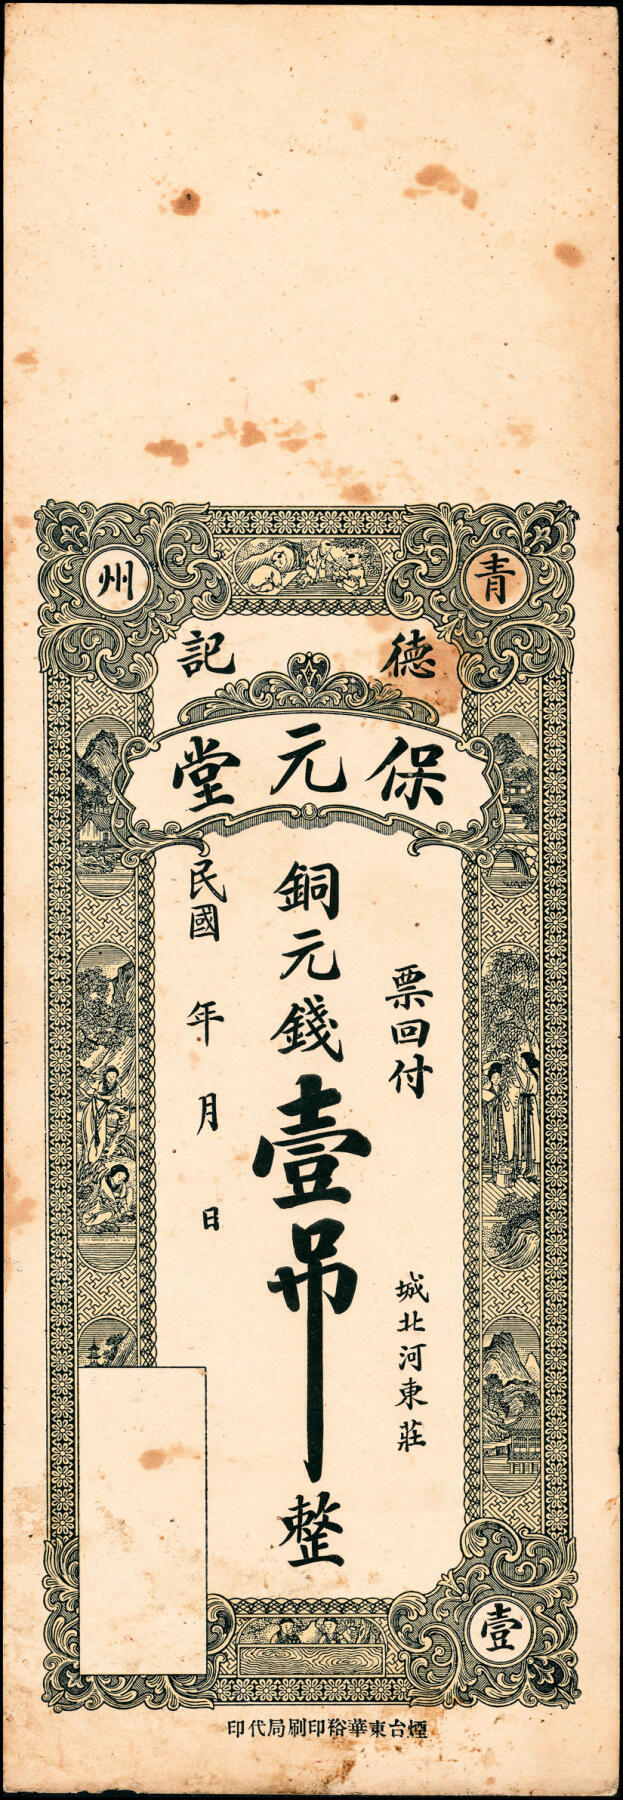 青州
德記
保元堂
票回付
城北河東莊
銅元錢壹吊整
民國 年 月 日
壹
煙台東華裕印刷局代印